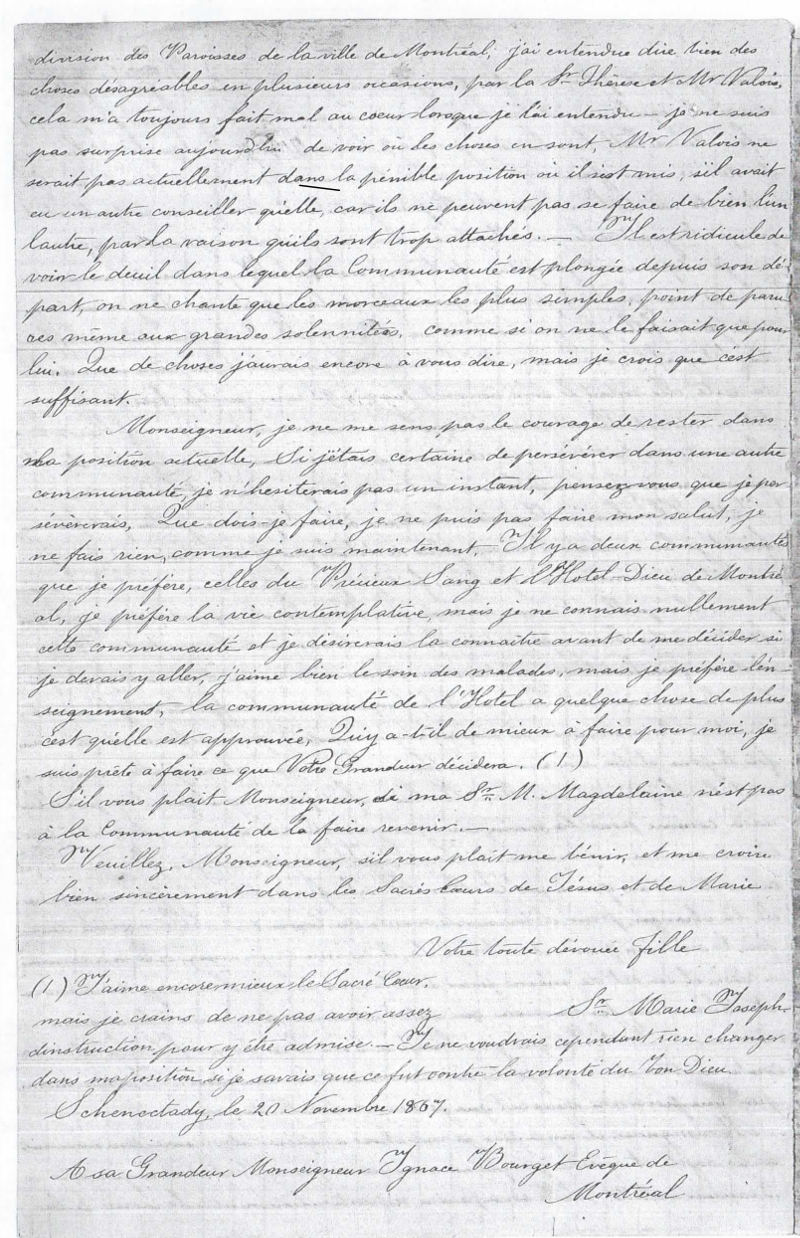 division des Paroisses de la ville de Montréal, j'ai entendue dire bien des
choses désagréables en plusieurs occasions, par la Sr Thérèse et Mr Valois,
cela m'a toujours fait mal au coeur lorsque je l'ai entendu — je ne suis
pas surprise aujourd'hui de voir où les choses en sont, Mr Valois ne
serait pas actuellement dans la pénible position où il s'est mis, s'il avait
eu un autre conseiller qu'elle, car ils ne peuvent pas se faire de bien l'un
l'autre, par la raison qu'ils sont trop attachés. — Il est ridicule de
voir le deuil dans lequel la Communauté est plongée depuis son dé-
part, on ne chante que les morceaux les plus simples, point de paru
res même aux grandes solennités, comme si on ne le faisait que pour
lui. Que de choses j'aurais encore à vous dire, mais je crois que c'est
suffisant.
Monseigneur, je ne me sens pas le courage de rester dans
la position actuelle, Si j'étais certaine de persévérer dans une autre
communauté, je n'hesiterais pas un instant, pensez-vous que je per
sévèrerais, Que dois-je faire, je ne puis pas faire mon salut, je
ne fais rien, comme je suis maintenant. Il y a deux communautés
que je préfère, celles du Précieux Sang et l'Hotel-Dieu de Montré
al, je préfère la vie contemplative, mais je ne connais nullement
cette communauté et je désirerais la connaitre avant de me décider si
je devais y aller, j'aime bien le soin des malades, mais je préfère l'en-
seignement, la communauté de l'Hotel a quelque chose de plus
c'est qu'elle est approuvée, Qu'y a-t-il de mieux à faire pour moi, je
suis prête à faire ce que Votre Grandeur décidera. (1)
S'il vous plait Monseigneur, si ma Sr M. Magdelaine n'est pas
à la Communauté de la faire revenir. —
Veuillez, Monseigneur, s'il vous plait me bénir, et me croire
bien sincèrement dans les Sacrés Coeurs de Jésus et de Marie
Votre toute dévouée fille
(1) J'aime encore mieux le Sacré Coeur,
mais je crains de ne pas avoir assez
Sr Marie Joseph
d'instruction pour y être admise. — Je ne voudrais cependant rien changer
dans ma position si je savais que ce fut contre la volonté du bon Dieu
Schenectady, le 20 Novembre 1867.
A sa Grandeur Monseigneur Ignace Bourget Evêque de
Montréal